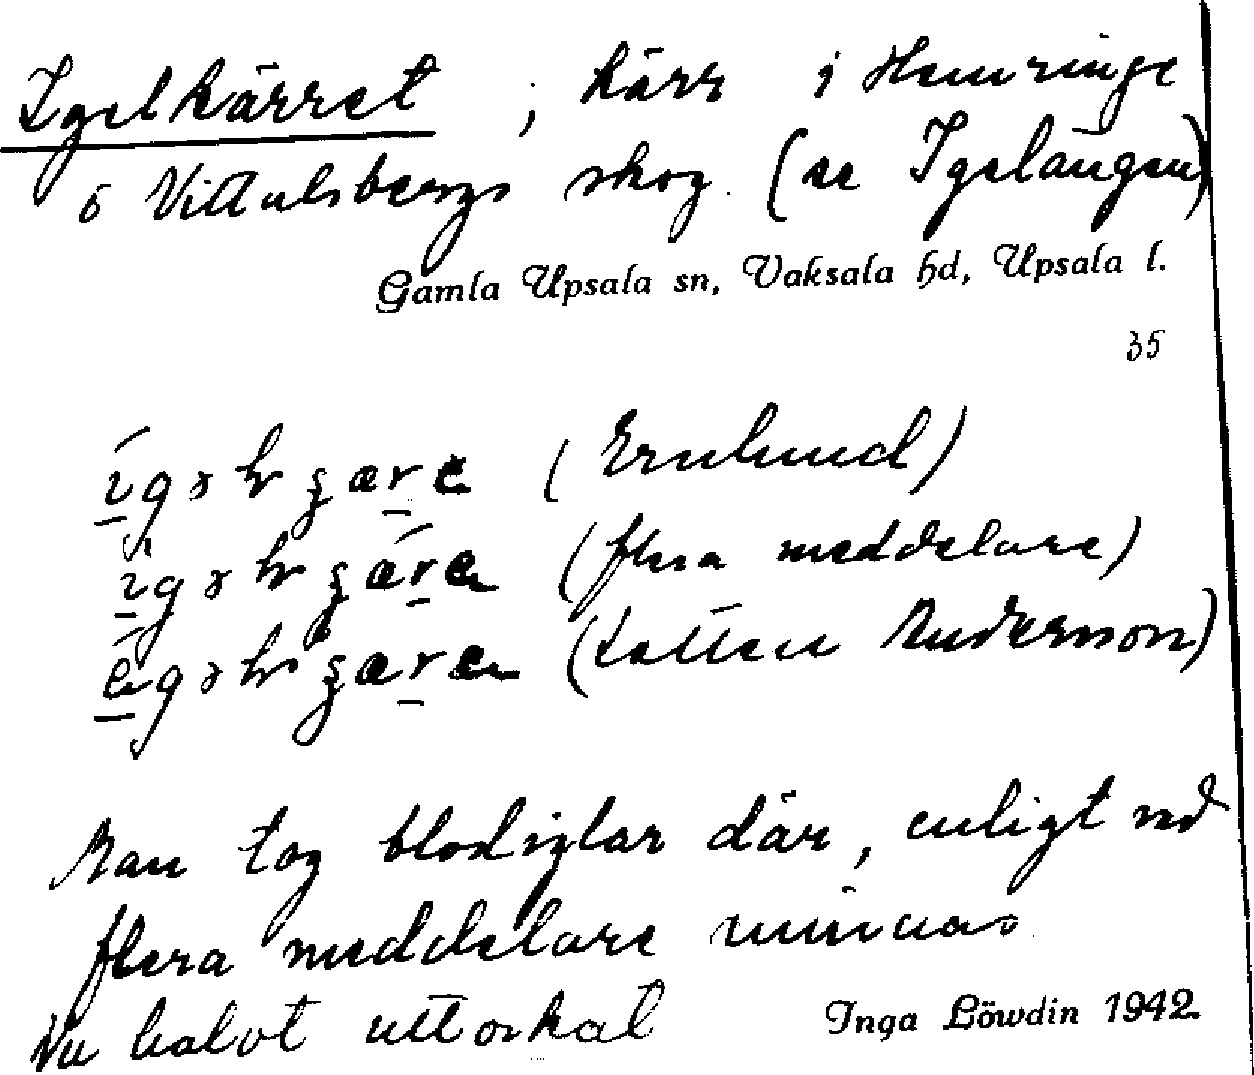 Igelkärret, kärr i Hemringe
o Vittulsbergs skog. (se Igelängen)
Gamla Upsala sn, Vaksala hd, Upsala l.
35
(Ernlund)
(flera meddelare)
(Lotten Anderson)
Man tog blodiglar där, enligt vad
flera meddelare minnas
Nu halvt uttorkat
Inga Löwdin 1942.